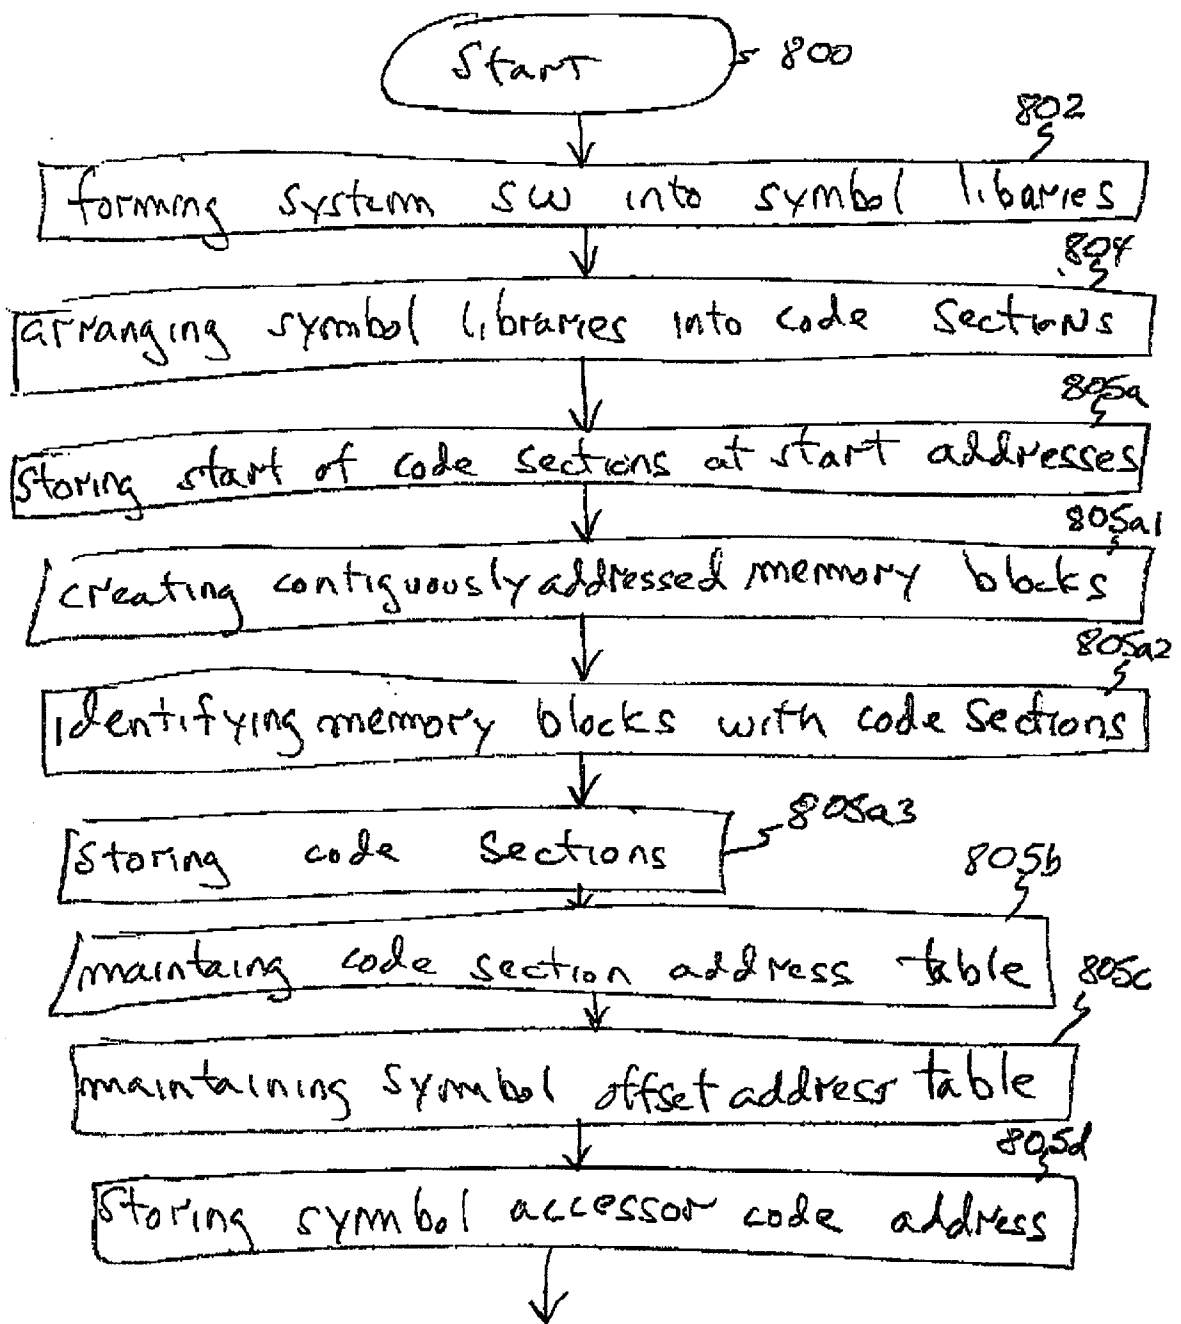 Start 800
802
forming system SW into symbol libaries
804
arranging symbol libraries into code sections
805a
storing start of code sections at start addresses
805a1
creating contiguously addressed memory blocks
805a2
identifying memory blocks with code sections
storing code sections 805a3
805b
maintaing code section address table
805c
maintaining symbol offset address table
805d
storing symbol accessor code address